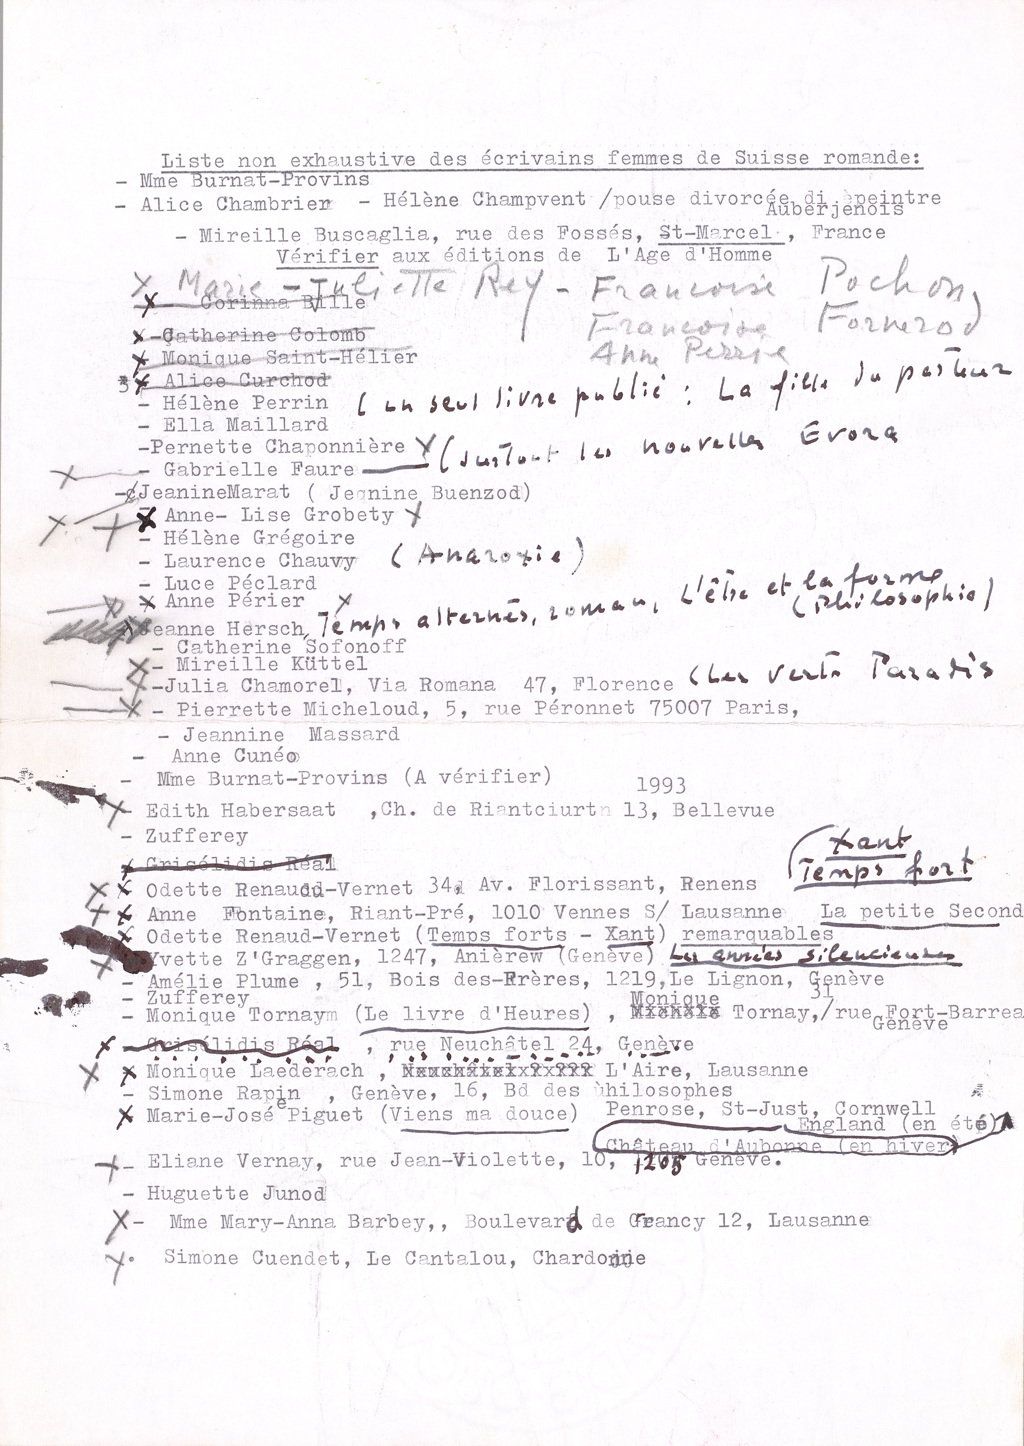 Liste non exhaustive des écrivains femmes de Suisse romande:
- Mme Burnat-Provins
- Alice Chambrier - Hélène Champvent /pouse divorcée di peintre
Auberjenois
- Mireille Buscaglia, rue des Fossés, St-Marcel , France
Vérifier aux éditions de L'Age d'Homme
X Marie-Juliette Rey - Francoise Pochon,
x Corinna Bille
Francoise Fornerod
x -Catherine Colomb
Anne Perrie
x Monique Saint-Hélier
3 x Alice Curchod
- Hélène Perrin (un seul livre publié : La fille du pasteur
- Ella Maillard
-Pernette Chaponnière X (surtout les nouvelles Evora
X - Gabrielle Faure
-JeanineMarat ( Jeanine Buenzod)
X X X Anne- Lise Grobety X
- Hélène Grégoire
- Laurence Chauvy (Anaroxie)
- Luce Péclard
X x Anne Périer X
Jeanne Hersch, Temps alternés, roman, L'être et la forme
(Philosophie)
- Catherine Sofonoff
X - Mireille Küttel
X -Julia Chamorel, Via Romana 47, Florence (Les verts Paradis
X - Pierrette Micheloud, 5, rue Péronnet 75007 Paris,
- Jeannine Massard
- Anne Cunéo
- Mme Burnat-Provins (A vérifier)
1993
X Edith Habersaat ,Ch. de Riantciurtn 13, Bellevue
- Zufferey
Xant
Temps fort
x Grisélidis Réal
X x Odette Renaudd-Vernet 34, Av. Florissant, Renens
X x Anne Fontaine, Riant-Pré, 1010 Vennes S/ Lausanne La petite Second
x Odette Renaud-Vernet (Temps forts - Xant) remarquables
X Yvette Z'Graggen, 1247, Anièrew (Genève) Les années silencieuses
- Amélie Plume , 51, Bois des-Frères, 1219,Le Lignon, Genève
- Zufferey
- Monique Tornaym (Le livre d'Heures) , Monique Tornay,/rue Fort-Barrea
31
Genève
x - Grisélidis Réal , rue Neuchâtel 24, Genève
X x Monique Laederach , L'Aire, Lausanne
- Simone Rapin , Genève, 16, Bd des philosophes
x Marie-José Piguet (Viens ma douce) Penrose, St-Just, Cornwell
England (en été)
Château d'Aubonne (en hiver)
X - Eliane Vernay, rue Jean-Violette, 10, 1205 Genève.
- Huguette Junod
X - Mme Mary-Anna Barbey,, Boulevard de Grancy 12, Lausanne
X Simone Cuendet, Le Cantalou, Chardonne